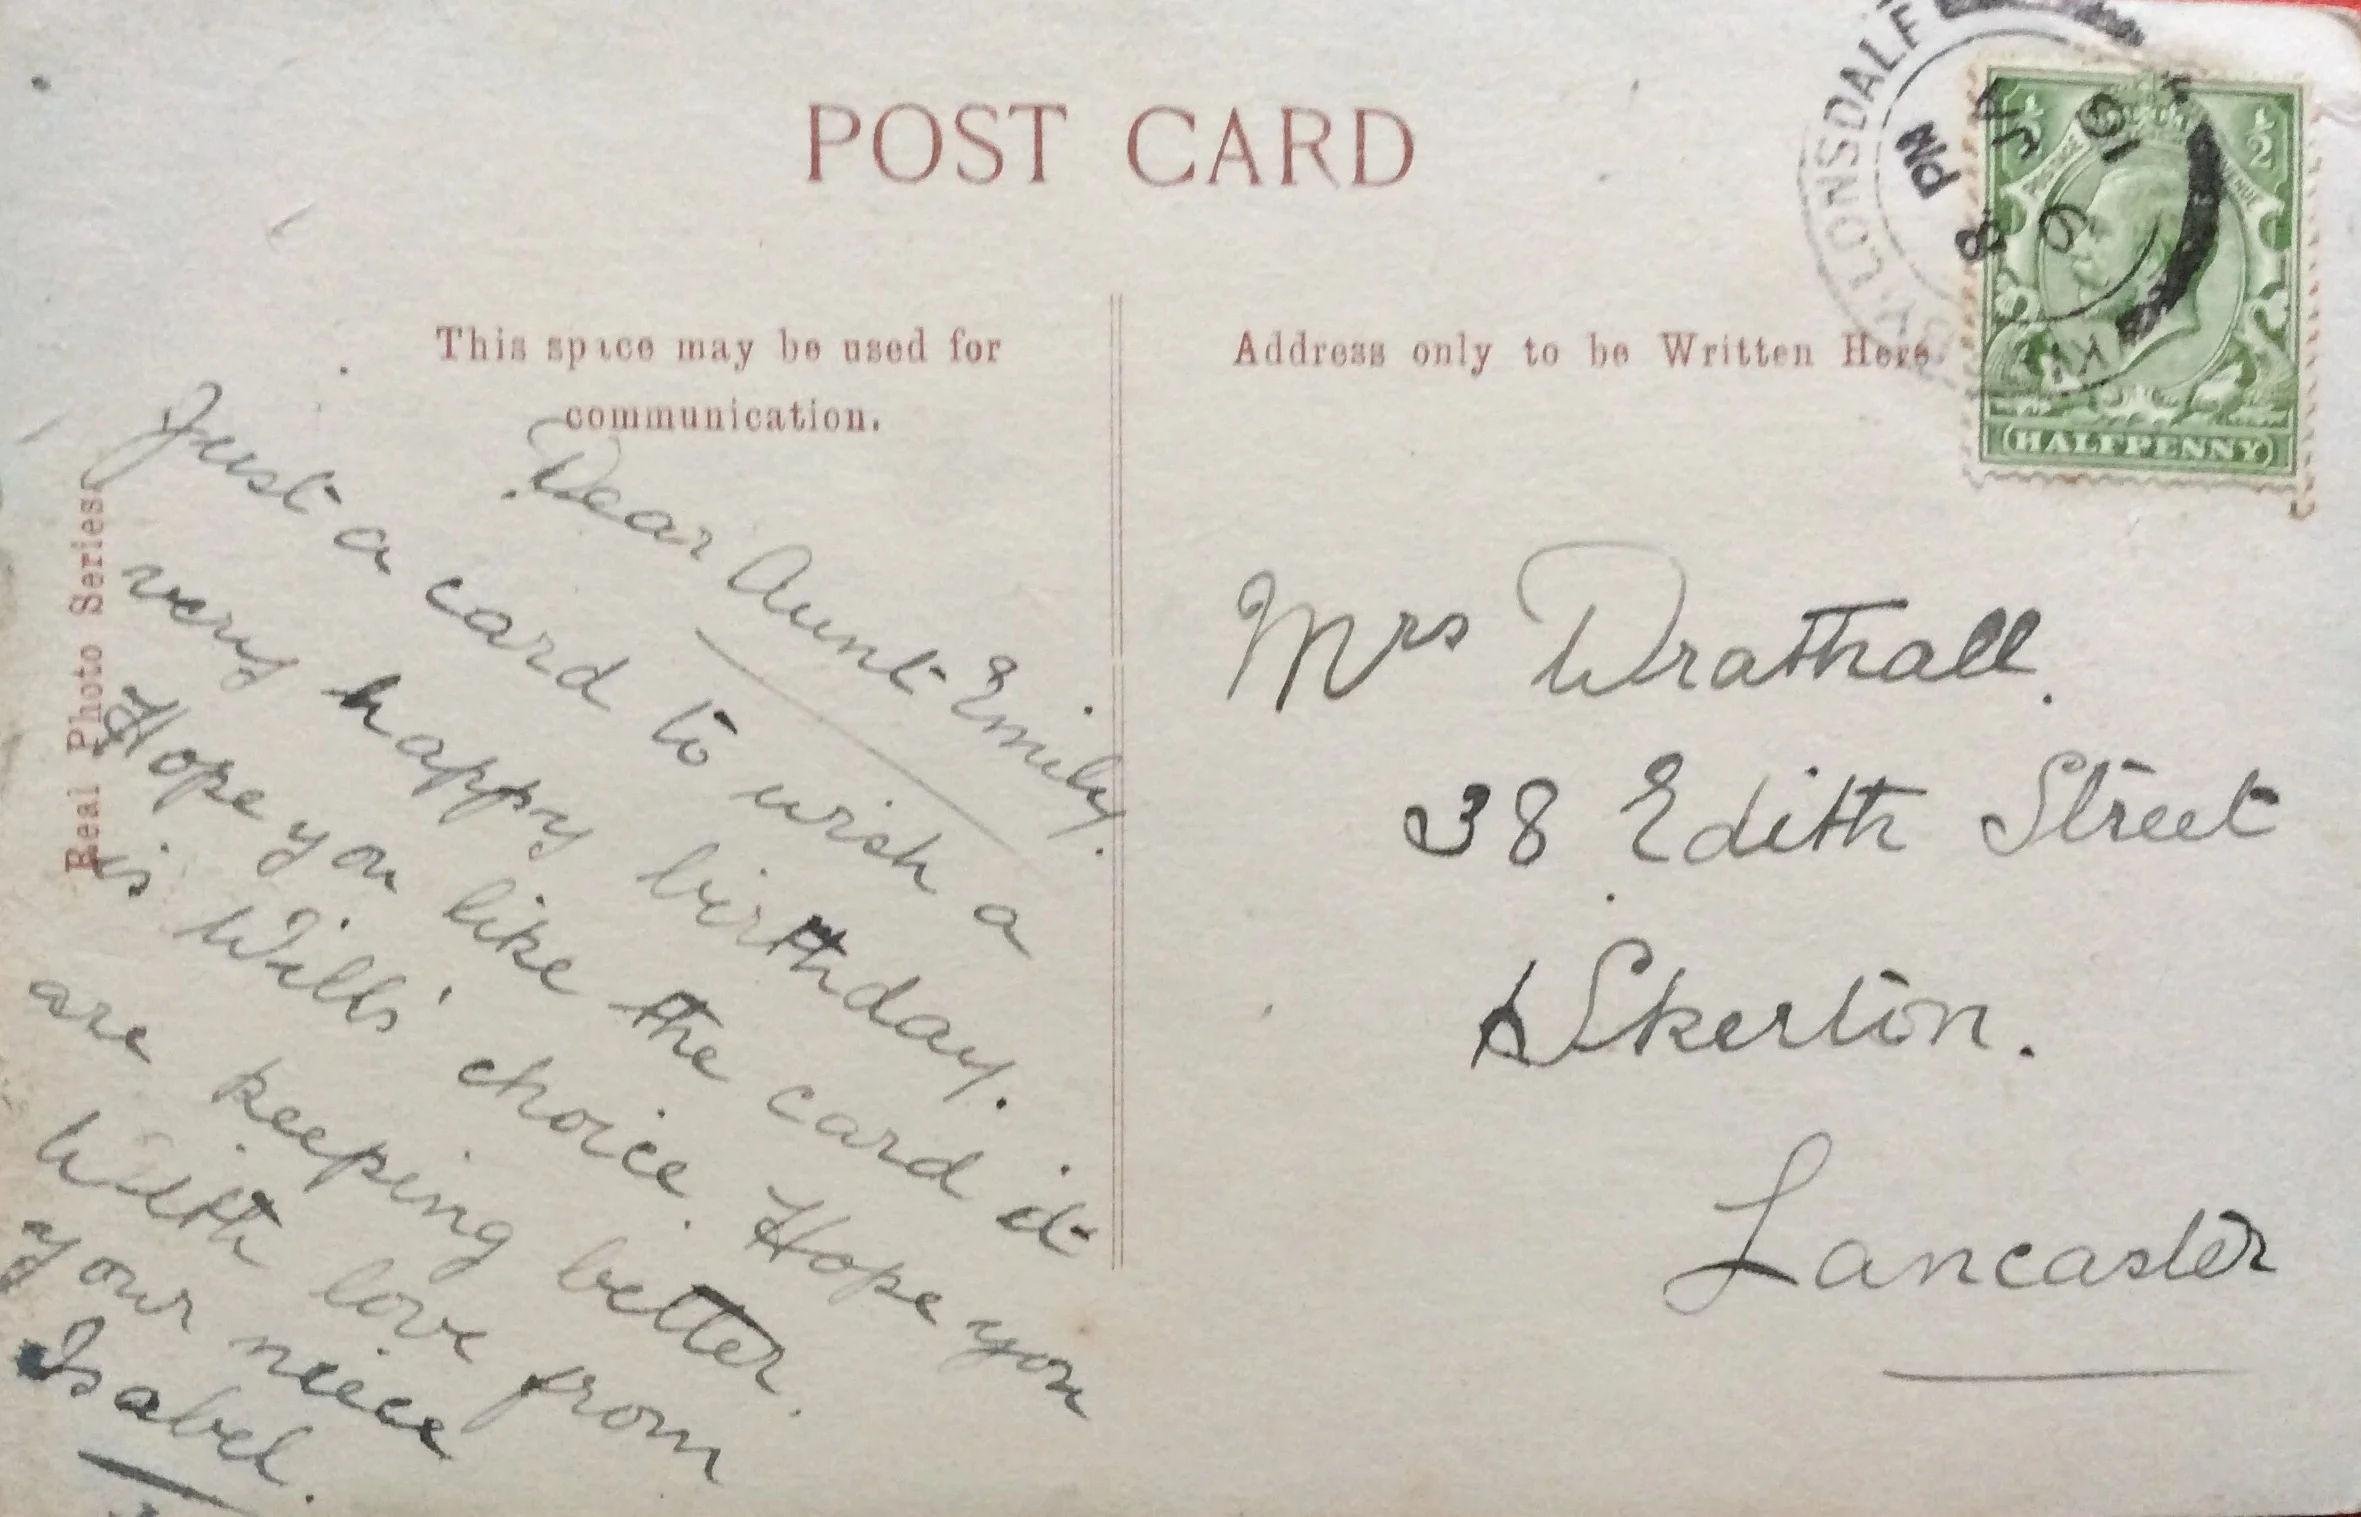 POST CARD
This space may be used for
communication.
Address only to be Written Here.
Real Photo Series
Dear Aunt Emily.
Just a card to wish a
very happy birthday.
Hope you like the card it
is Wills' choice. Hope you
are keeping better.
With love from
your neice
Isabel.
Mrs Wrathall.
38 Edith Street
Skerton.
Lancaster
LONSDALE
PM
8
JY
16
HALFPENNY